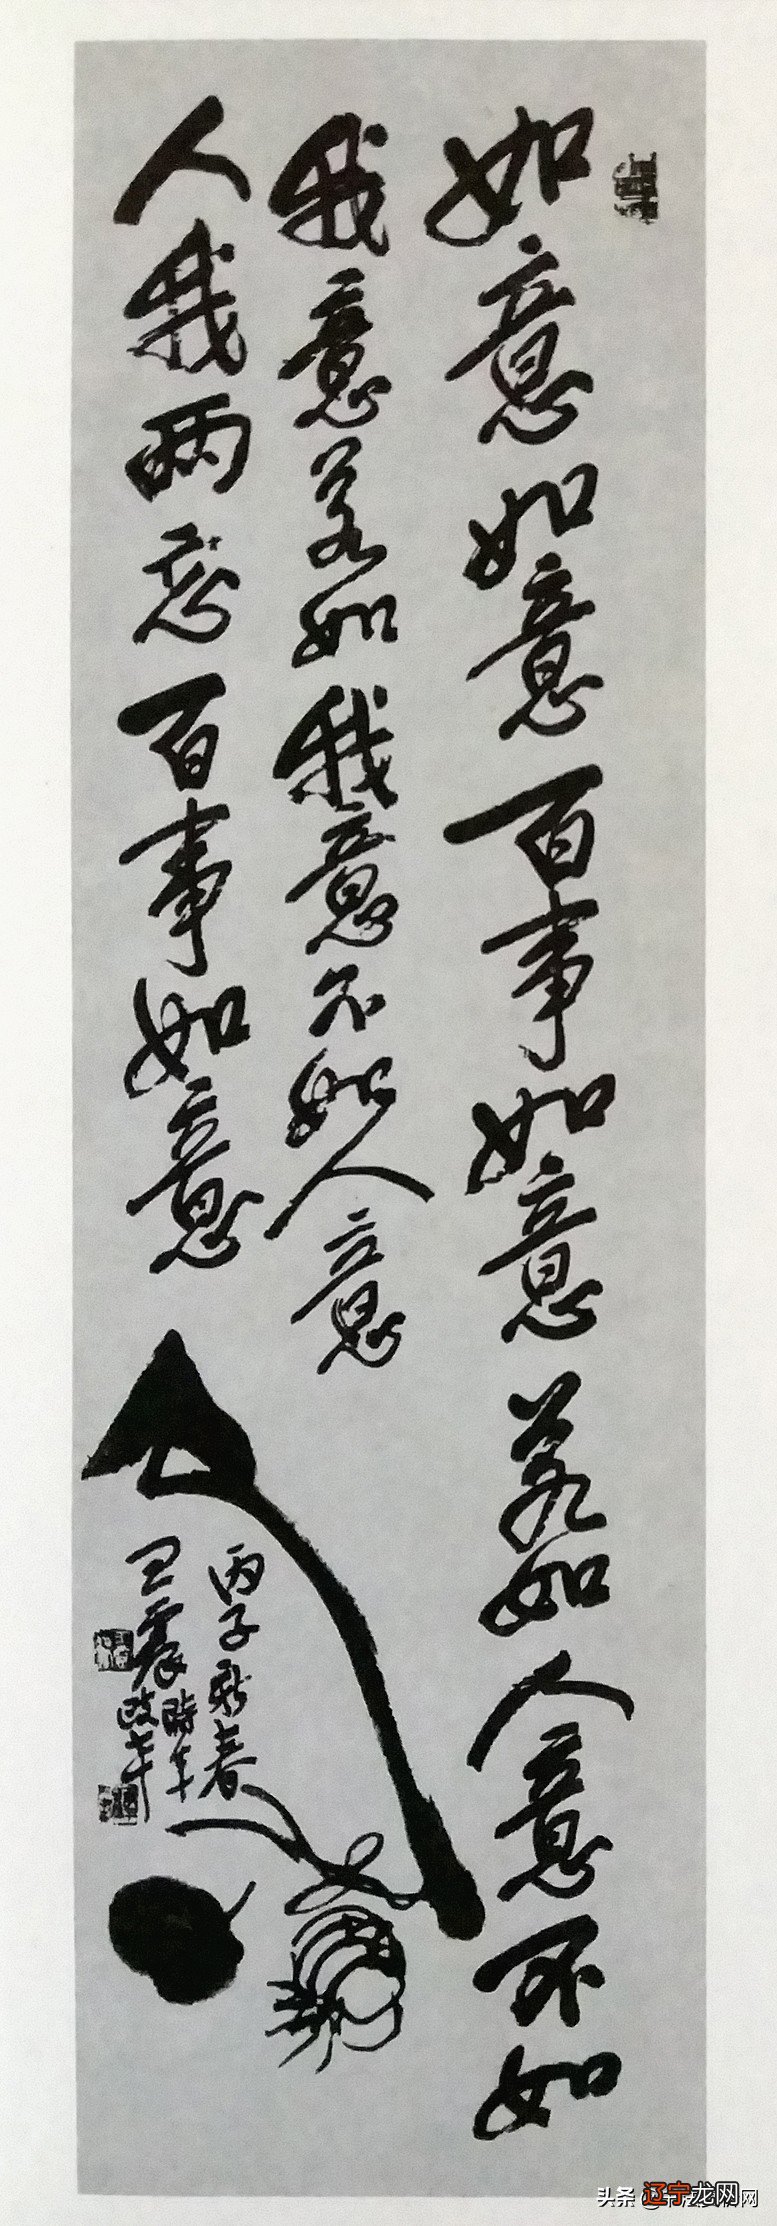 如意如意百事如意若如人意不如
我意若如我意不如人意
人我兩忘百事如意
丙子新春
王震時年
政年
头条
辽宁龙网